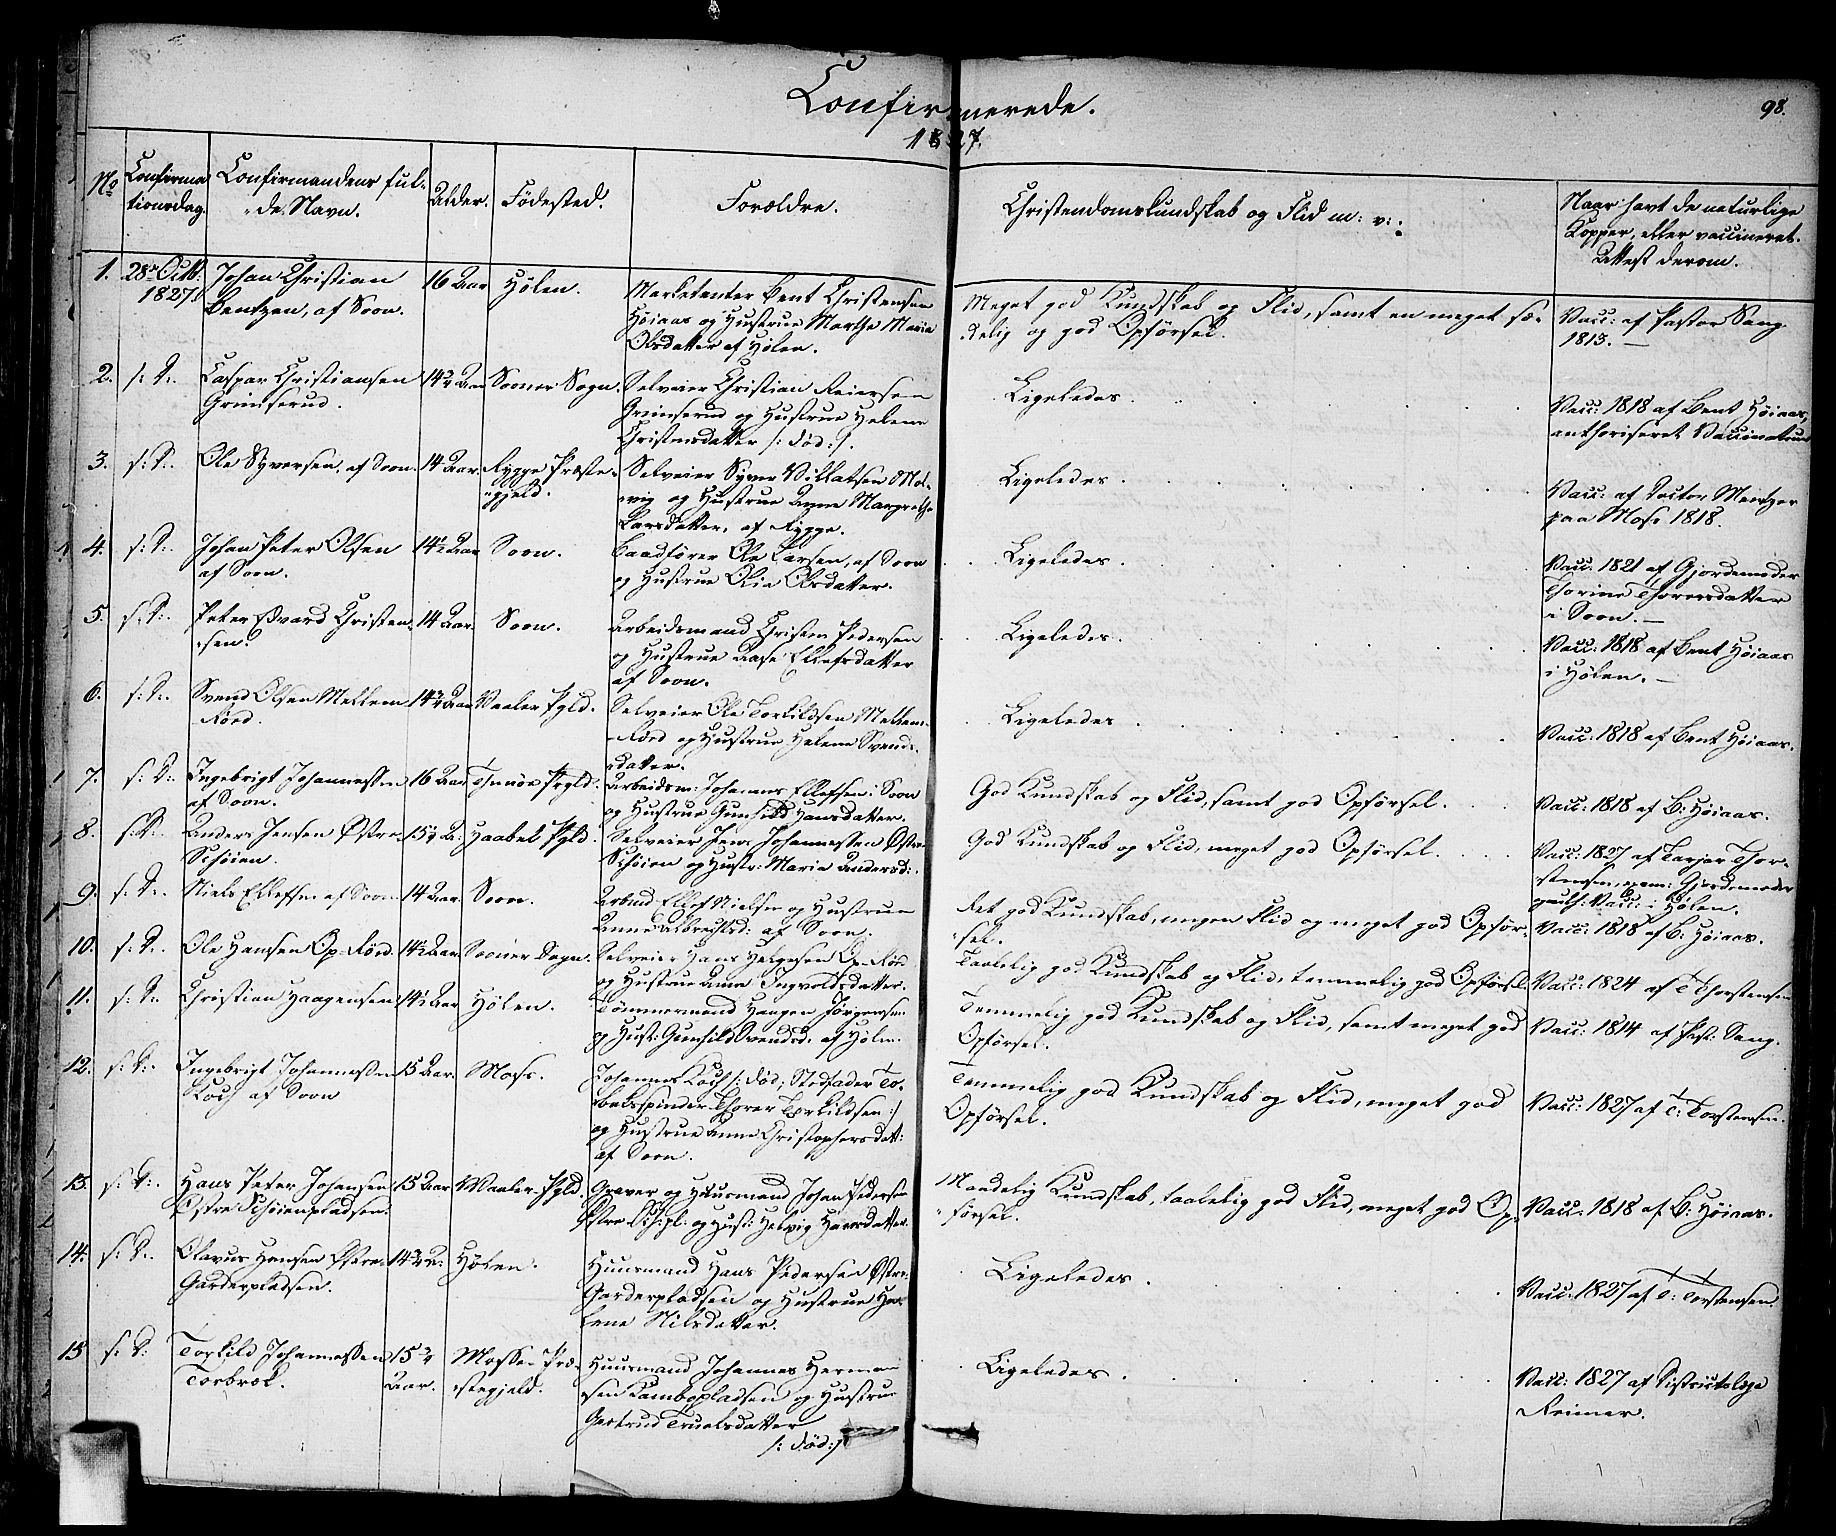 Confirmerede.
98.
1827.
No
Confirma
tionsdag.
Confirmandens ful-
de Navn.
Alder.
Födested.
Forældre.
Christendomskundskab og Flid m: v:
Naar havt de naturlige
Kopper, eller vaccineret.
Attest derom.
1. 28de Octb: 1827. Johan Christian
Bentzen, af Soon.
16 Aar
Hølen.
Marketenter Bent Christensen
Høiaas og Hustrue Marthe Maria
Olsdatter af Hølen.
Meget god Kundskab og Flid, samt en meget sæ-
delig og god Opførsel.
Vacc: af Pastor Sang
1813.
2. s: D:. Caspar Christiansen
Grimserud.
14 3/4 Aar
Sooner Sogn.
Selveier Christian Reiersen
Grimserud og Hustrue Helene
Christensdatter /: død :/.
Ligeledes.
Vacc: 1818 af Bent Høiaas,
authoriseret Vaccinateur
3. s: D:. Ole Syversen, af Soon.
14 Aar.
Rygge Præste-
gjeld.
Selveier Syver
og Hustrue Anne Margrethe
Larsdatter, af Rygge.
Ligeledes.
Vacc: af Doctor Mentzer
paa Moss 1818.
4. s: D:. Johan Peter Olsen
af Soon.
14 1/2 Aar
Soon.
Baadfører Ole Larsen, af Soon
og Hustrue Olia Olsdatter.
Ligeledes.
Vacc: 1821 af Gjordemoder
Thorine Thorersdatter
i Soon.
5. s: D:. Peter Edvard Christen-
sen.
14 Aar.
Soon.
Arbeidsmand Christen Pedersen
og Hustrue Aase Ellefsdatter
af Soon.
Ligeledes.
Vacc: 1818 af Bent Høiaas
i Hølen.
6. s: D:. Svend Olsen Mellem
Rörd.
14 3/4 Aar
Vaaler Pgld.
Selveier Ole Torkildsen Mellem-
Rörd og Hustrue Helene Svends-
datter.
Ligeledes
Vacc: 1818 af Bent Høiaas.
7. s: D:. Ingebrigt Johannessen
af Soon.
16 Aar
Thunöe Prgld.
Arbeidsm: Johannes Ellefsen i Soon
og Hustrue Gunhild Hansdatter.
God Kundskab og Flid, samt god Opførsel.
Vacc: 1818 af B: Høiaas.
8. s: D:. Anders Jensen Østre
Schöien.
15 1/4 A:
Haabøl Pgld.
Selveier Jens Johannessen Østre
Schöien og Hustr: Maria Andersd:.
God Kundskab og Flid, meget god Opførsel.
Vacc: 1827 af Tarjer Thor-
stensen, exam: Gjordemoder
Vacc: i Hølen.
9. s: D:. Niels Ellefsen af Soon
14 Aar
Soon.
Arbmd Ellef Nielsen og Hustrue
Anne Albrechtsd: af Soon.
Ret god Kundskab, megen Flid og meget god Opfør-
sel.
Vacc: 1818 af B: Høiaas.
10. s: D:. Ole Hansen Op-Rörd.
14 1/2 Aar
Sooner Sogn.
Selveier Hans Helgesen Op-Rörd
og Hustrue Anna Ingvoldsdatter.
Taalelig god Kundskab og Flid, temmelig god Opførsel.
Vacc: 1824 af T Thorstensen
11. s: D:. Christian Haagensen
14 1/2 Aar
Hølen.
Tømmermand Haagen Jörgensen
og Hust: Gunhild Svendsd. af Hølen.
Temmelig god Kundskab og Flid, samt meget god
Opførsel.
Vacc: 1814 af Past: Sang.
12. s: D:. Ingebrigt Johannessen
Koch af Soon
15 Aar.
Moss.
Johannes Koch /: død, Stedfader To-
baksspinder Thorer Torkildsen :/
og Hustrue Anne Christophersdatt:
af Soon.
Temmelig god Kundskab og Flid, meget god
Opførsel.
Vacc: 1827 af T: Torstensen.
13. s: D:. Hans Peter Johansen
Østre Schöienpladsen.
15 Aar
Waaler Pgld.
Graver og Huusmand Johan Pedersen
Østre Sch:pl: og Hust: Helvig Hansdatter.
Maadelig Kundskab, taalelig god Flid, meget god Op-
førsel.
Vacc: 1818 af B: Høiaas.
14. s: D:. Olavus Hansen Østre
Garderpladsen.
14 3/4 A:
Hølen.
Huusmand Hans Pedersen Østre
Garderpladsen og Hustrue He-
lene Nilsdatter.
Ligeledes.
Vacc: 1827 af T: Torstensen.
15 s: D: Torkild Johannessen
Torbræk.
15 3/4
Aar.
Mosse Præ-
stegjeld.
Huusmand Johannes Herman-
sen Kambopladsen og Hustrue
Gertrud Truelsdatter
/: død :/
Ligeledes.
Vacc: 1827 af
Reimer.